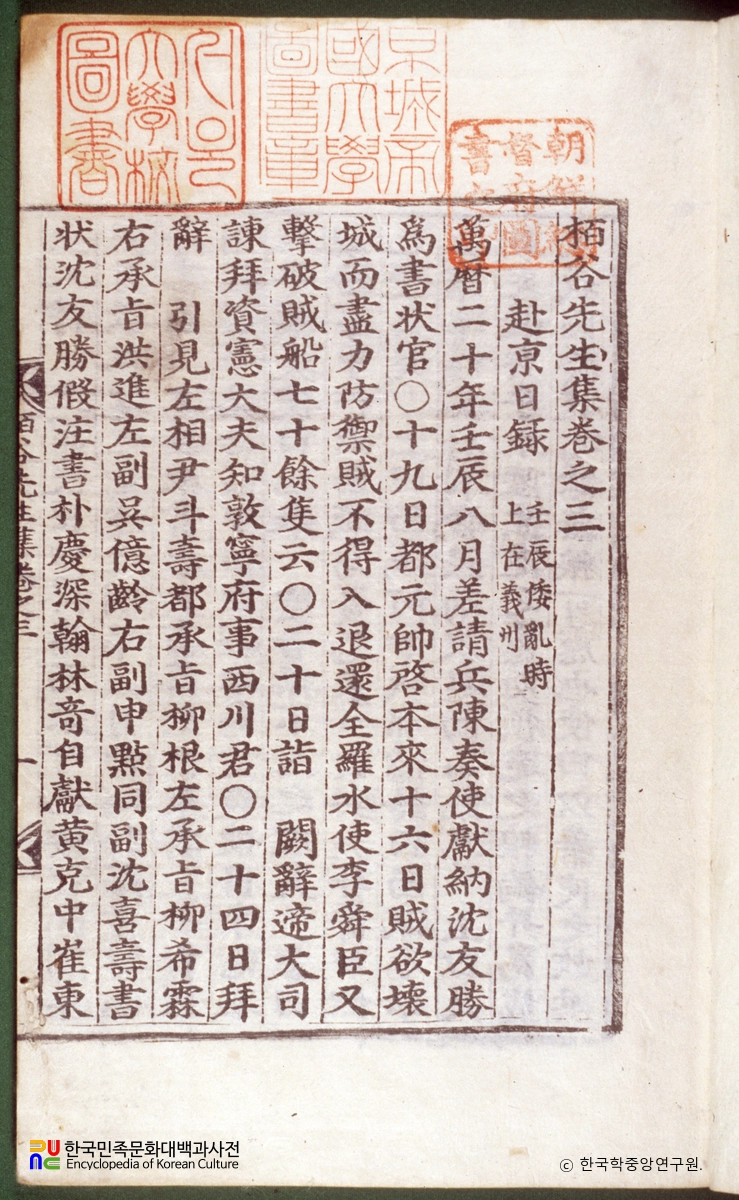 栢谷先生集卷之三
赴京日録 壬辰倭亂時
上在義州
萬暦二十年壬辰八月差請兵陳奏使獻納沈友勝
爲書狀官○十九日都元帥啓本來十六日賊欲壞
城而盡力防禦賊不得入退還全羅水使李舜臣又
擊破賊船七十餘隻云○二十日詣 闕辭遆大司
諫拜資憲大夫知敦寧府事西川君○二十四日拜
辭 引見左相尹斗壽都承旨柳根左承旨柳希霖
右承旨洪進左副吳億齡右副申點同副沈喜壽書
狀沈友勝假注書朴慶深翰林奇自獻黃克中崔東
栢谷先生集卷之三
一
京城帝
國大學
圖書章
大學校
圖書
朝鮮總
督府圖
書之
한국민족문화대백과사전
Encyclopedia of Korean Culture
© 한국학중앙연구원.